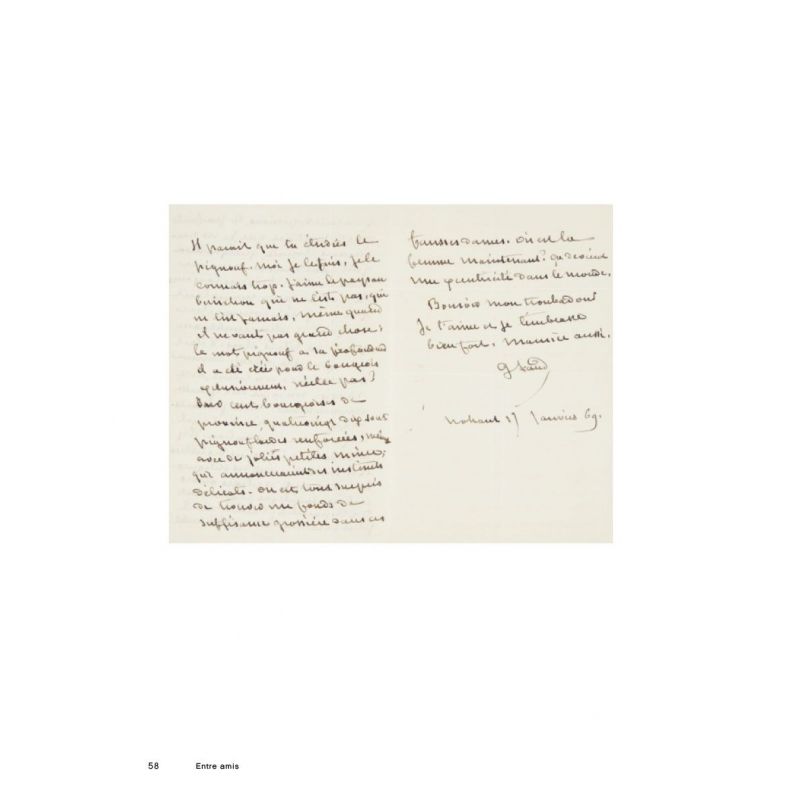 Il parait que tu étudies le
pignouf. Moi je le fuis, je le
connais trop. J'aime le paysan
berrichon qui ne l'est pas, qui
ne l'est jamais, même quand
il ne vaut pas grand chose;
le mot pignouf a sa profondeur
il a été créé pour le bourgeois
exclusivement, n'est ce pas?
Sur cent bourgeoises de
province, quatrevingt dix sont
pignouflardes renforcées, même
avec de jolies petites mines,
qui annonceraient des instincts
délicats. On est tout surpris
de trouver un fonds de
suffisance grossière dans ces
fausses dames. Où est la
femme maintenant? ça devient
une excentricité dans le monde.
Bonsoir mon troubadour
Je t'aime et je t'embrasse
bien fort. Maurice aussi.
G Sand
Nohant 17 Janvier 69.
58 Entre amis